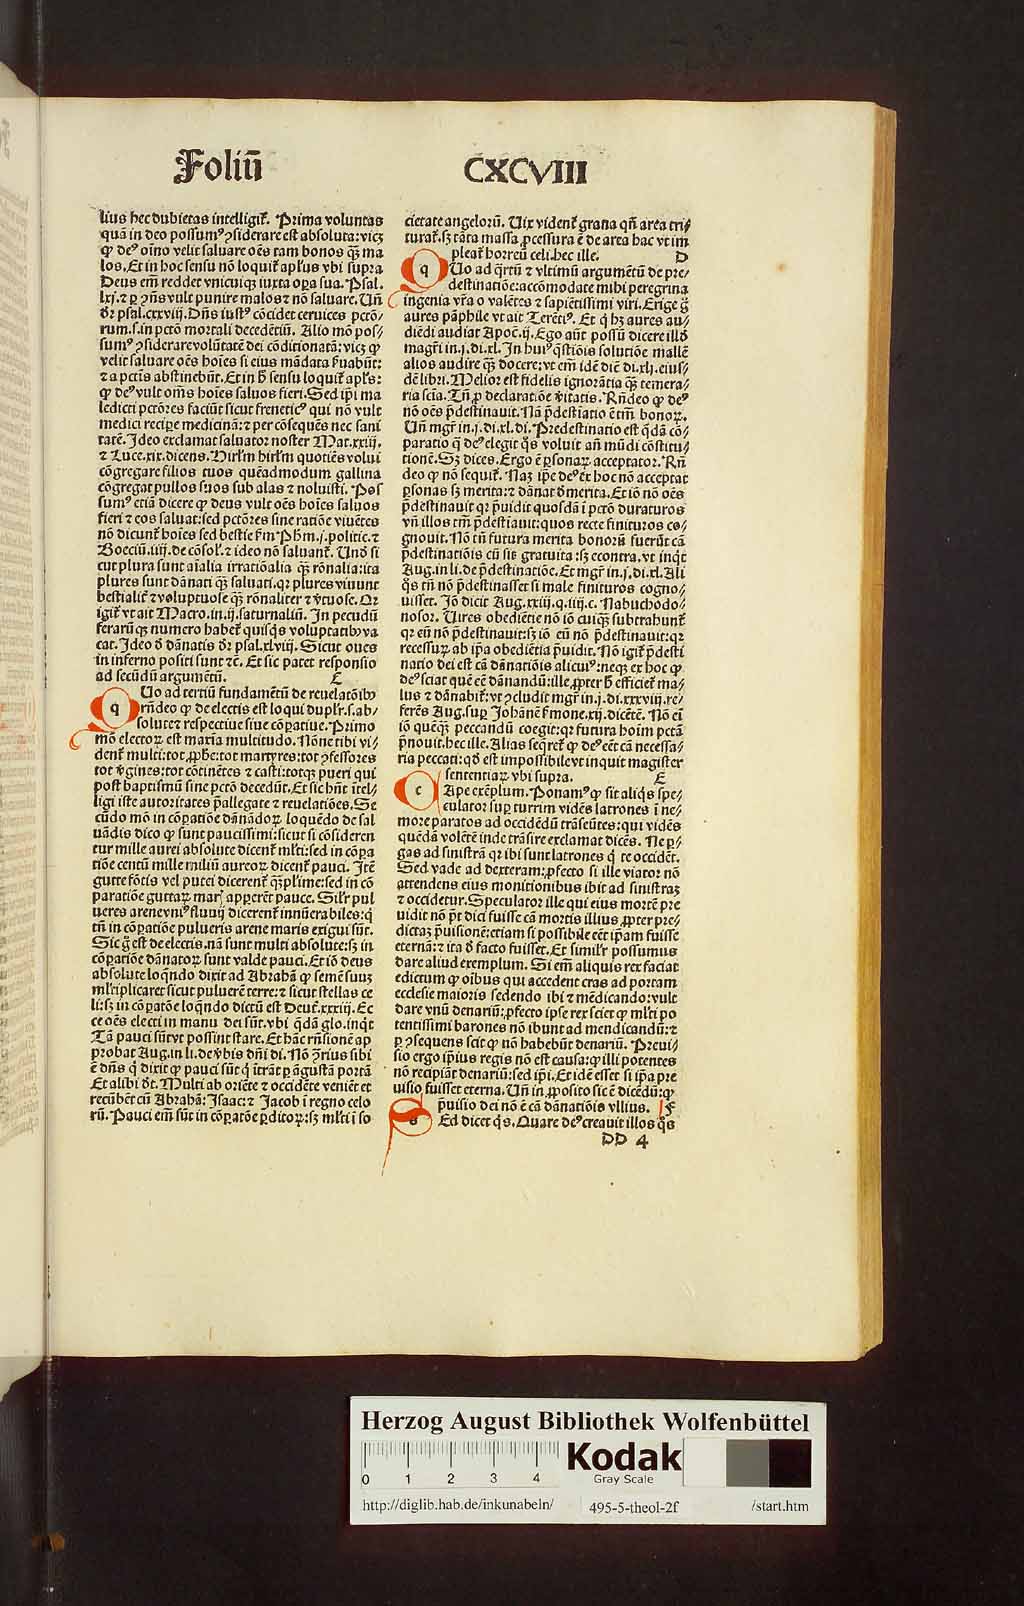 Foliū CXCVIII
lius hec dubietas intelligit̄. Prima voluntas
quā in deo possumꝰ ꝯsiderare est absoluta: vicꝫ
ꝙ deꝰ oīno velit saluare oēs tam bonos qꝫ̄ ma
los. Et in hoc sensu nō loquit̄ apl̄us vbi supra
Deus em̄ reddet vnicuiqꝫ iuxta oꝑa sua. Psal.
lxj. ⁊ ꝑ ꝯn̄s vult punire malos ⁊ nō saluare. Un̄
dr̄ psal. cxxviij. Dn̄s iustꝰ cōcidet ceruices pctō⸗
rum. s. in pctō mortali decedētiū. Alio mō pos⸗
sumꝰ ꝯsiderare volūtatē dei cōditionatā: vicꝫ ꝙ
velit saluare oēs hoīes si eius mādata ẜuabūt:
⁊ a pctīs abstinebūt. Et in h̄ sensu loquit̄ apl̄s:
ꝙ deꝰ vult om̄s hoīes saluos fieri. Sed ip̄i ma
ledicti pctōres faciūt sicut freneticꝰ qui nō vult
medici recipe medicinā: ⁊ per cōsequēs nec sani
tatē. Ideo exclamat saluator noster Mat. xxiij.
⁊ Luce. xix. dicens. Hirl̄m hirl̄m quotiēs volui
cōgregare filios tuos quēadmodum gallina
cōgregat pullos suos sub alas ⁊ noluisti. Pos
sumꝰ etiā dicere ꝙ deus vult oēs hoīes saluos
fieri ⁊ eos saluat: sed pctōres sine ratiōe viuētes
nō dicunt̄ hoīes sed bestie ẜm Ph̄m. j. politic. ⁊
Boeciū. iiij. de cōsol̄. ⁊ ideo nō saluant̄. Unđ si
cut plura sunt aīalia irratiōalia qꝫ̄ rōnalia: ita
plures sunt dānati qꝫ̄ saluati. qꝛ plures viuunt
bestialit̄ ⁊ voluptuose qꝫ̄ rōnaliter ⁊ v̄tuose. Or
igit̄ vt ait Macro. in. ij. saturnaliū. In pecudū
ferarūqꝫ numero habet̄ quisqs̄ voluptatibꝰ va
cat. Ideo đ dānatis dr̄: psal. xlviij. Sicut oues
in inferno positi sunt ⁊c̄. Et sic patet responsio
ad secūdū argumētū. E
qUo ad tertiū fundamētū de reuelatōibꝰ
rn̄deo ꝙ de electis est loqui duplr̄. s. ab⸗
solute ⁊ respectiue siue cōꝑatiue. Primo
mō electoꝝ est maxīa multitudo. Nōne tibi vi⸗
dent̄ multi: tot ꝓphe: tot martyres: tot ꝯfessores
tot v̄gines: tot cōtinētes ⁊ casti: totqꝫ pueri qui
post baptismū sine pctō decedūt. Et sic hn̄t itel⸗
ligi iste autoritates p̄allegate ⁊ reuelatiōes. Se
cūdo mō in cōꝑatiōe dānādoꝝ loquēdo de sal
uādis dico ꝙ sunt paucissimi: sicut si cōsideren
tur mille aurei absolute dicent̄ ml̄ti: sed in cōꝑa
tiōe centū mille miliū aureoꝝ dicent̄ pauci. Itē
gutte fōtis vel putei dicerent̄ qꝫ̄pl̄ime: sed in cō
paratiōe guttaꝝ marꝭ apperēt pauce. Silr̄ pul
ueres arene vniꝰ fluuij dicerent̄ innūerabiles: q̄
tn̄ in cōꝑatiōe pulueris arene maris exigui sūt.
Sic ḡ est de electis. nā sunt multi absolute: sꝫ in
cōꝑatiōe dānatoꝝ sunt valde pauci. Et iō deus
absolute loqn̄do dixit ad Abrahā ꝙ semē suuꝫ
ml̄tiplicaret sicut puluerē terre: ⁊ sicut stellas ce
li: sꝫ in cōꝑatōe loqn̄do dictū est Deut̄. xxxiij. Ec
ce oēs electi in manu dei sūt. vbi qdā glo. inqt
Tā pauci sūt vt possint stare. Et hāc rn̄sionē ap
probat Aug. in li. de v̄bis dn̄i di. Nō ꝯrius sibi
ē dn̄s q̄ dixit ꝙ pauci sūt q̄ itrāt ꝑ āgustā portā
Et alibi đt. Multi ab oriēte ⁊ occidēte veniēt et
recūbēt cū Abrahā: Isaac: ⁊ Jacob ī regno celo
rū. Pauci em̄ sūt in cōꝑatōe ꝑditoꝝ: sꝫ ml̄ti ī so
cietate angeloꝝ. Uix vident̄ grana qn̄ area tri⸗
turat̄. sꝫ tāta massa ꝓcessura ē de area hac vt im
pleat horreū celi. hec ille. D
qUo ad q̄rtū ⁊ vltimū argumētū de pre⸗
destinatiōe: accōmodate mihi peregrina
ingenia vr̄a o valētes ⁊ sapiētissimi viri. Erige ḡ
aures pāphile vt ait Terētiꝰ. Et q̄ hꝫ aures au⸗
diēdi audiat Apoc̄. ij. Ego aūt possū dicere illđ
magr̄i in. j. di. xl. In huiꝰ qōstiōis solutiōe mallē
alios audire qꝫ̄ docere: vt em̄ idē diē di. xlj. eius⸗
dē libri. Melior est fidelis ignorātia qꝫ̄ temera⸗
ria scīa. Tn̄ ꝓ declaratiōe v̄itatis. Rn̄deo ꝙ deꝰ
nō oēs p̄destinauit. Nā p̄destīatio ē tm̄ bonoꝝ.
Un̄ mgr̄ in. j. di. xl. di. Predestinatio est qdā cō⸗
paratio q̄ deꝰ elegit q̄s voluit an̄ mūdi cōstitu⸗
tionē. Sꝫ dices. Ergo ē ꝑsonaꝝ acceptator. Rn̄
deo ꝙ nō sequit̄. Naꝫ ip̄e deꝰ et hoc nō acceptat
ꝑsonas sꝫ merita: ⁊ dānat đmerita. Et iō nō oēs
p̄destinauit qꝛ p̄uidit quosdā ī pctō duraturos
vn̄ illos tm̄ p̄destīauit: quos recte finituros co⸗
gnouit. Nō tn̄ futura merita bonoꝝ fuerūt cā
p̄destinatiōis cū sit gratuita: sꝫ econtra. vt inqt
Aug. in li. de p̄destinatiōe. Et mgr̄ in. j. di. xl. Ali
q̄s tn̄ nō p̄destinasset si male finituros cogno⸗
uisset. Iō dicit Aug. xxiij. q. iiij. c. Nabuchodo⸗
nosor. Uires obediētie nō iō cuiqꝫ subtrahunt̄
qꝛ eū nō p̄destinauit: sꝫ iō eū nō p̄destinauit: qꝛ
recessuꝝ ab ip̄a obediētia p̄uidit. Nō igit̄ p̄desti
natio dei est cā dānatiōis alicuiꝰ: neqꝫ ex hoc ꝙ
deꝰ sciat quē eē dānandū: ille. ꝓpter h̄ efficiet̄ ma⸗
lus ⁊ dānabit̄: vt ꝯcludit mgr̄ in. j. di. xxxviij. re⸗
ferēs Aug. suꝑ Johānē ẜmone. xij. dicētē. Nō eī
iō quēqꝫ peccandū coegit: qꝛ futura hoīm pctā
p̄nouit. hec ille. Alias seqret̄ ꝙ deꝰ eēt cā necessa⸗
ria peccati: qđ est impossibile vt inquit magister
sententiaꝝ vbi supra. E
cApe exēplum. Ponamꝰ ꝙ sit aliqs̄ spe⸗
culator suꝑ turrim vidēs latrones ī ne⸗
more paratos ad occidēdū trāseūtes: qui vidēs
quēdā volētē inde trāsire exclamat dicēs. Ne ꝑ⸗
gas ad sinistrā qꝛ ibi sunt latrones q̄ te occidēt.
Sed vade ad dexteram: ꝓfecto si ille viator nō
attendens eius monitionibus ibit ad sinistraꝫ
⁊ occidetur. Speculator ille qui eius mortē pre
uidit nō p̄t dici fuisse cā mortis illius ꝓpter pre⸗
dictaꝫ p̄uisionē: etiam si possibile eēt ip̄am fuisse
eternā: ⁊ ita đ facto fuisset. Et similr̄ possumus
dare aliud exemplum. Si em̄ aliquis rex faciat
edictum ꝙ oībus qui accedent cras ad portam
ecclesie maioris sedendo ibi ⁊ mēdicando: vult
dare vnū denariū: ꝓfecto ipse rex sciet ꝙ ml̄ti po
tentissimi barones nō ibunt ad mendicandū: ⁊
ꝑ ꝯsequens scit ꝙ nō habebūt denariū. Preui⸗
sio ergo ip̄ius regis nō est causa: ꝙ illi potentes
nō recipiāt denariū: sed ip̄i. Et idē esset si ip̄a pre
uisio fuisset eterna. Un̄ in ꝓposito sic ē dicēdū: ꝙ
p̄uisio dei nō ē cā dānatiōis vllius. F
sEd dicet q̄s. Quare deꝰ creauit illos q̄s
DD 4
Herzog August Bibliothek Wolfenbüttel
Kodak
Gray Scale
0 1 2 3 4
http://diglib.hab.de/inkunabeln/ 495-5-theol-2f /start.htm